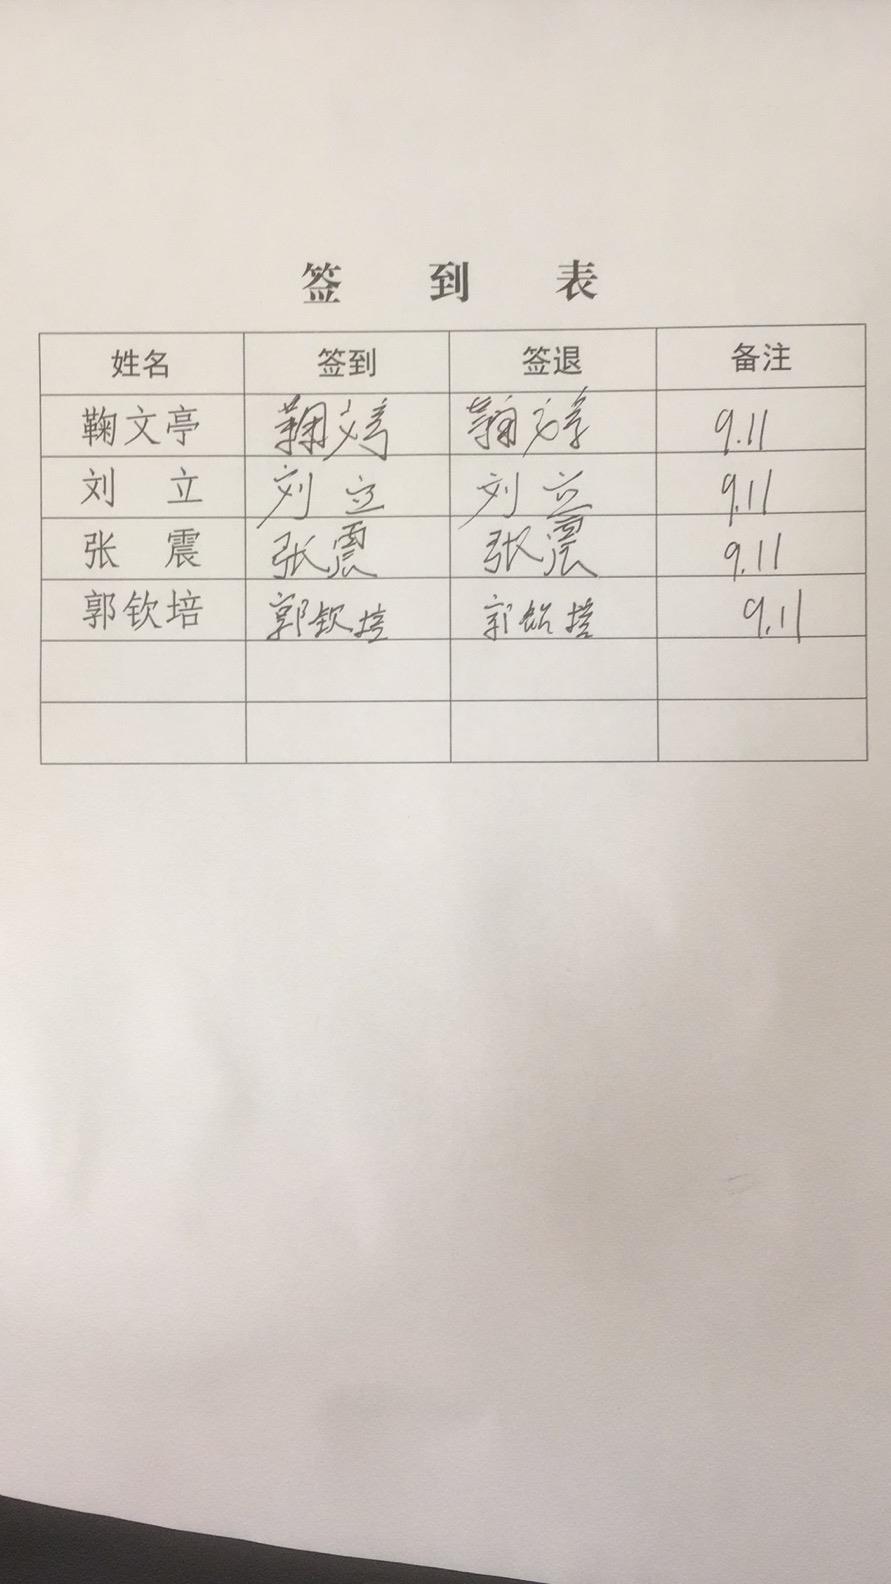 签到表
姓名 签到 签退 备注
鞠文亭 鞠文亭 鞠文亭 9.11
刘立 刘立 刘立 9.11
张震 张震 张震 9.11
郭钦培 郭钦培 郭钦培 9.11